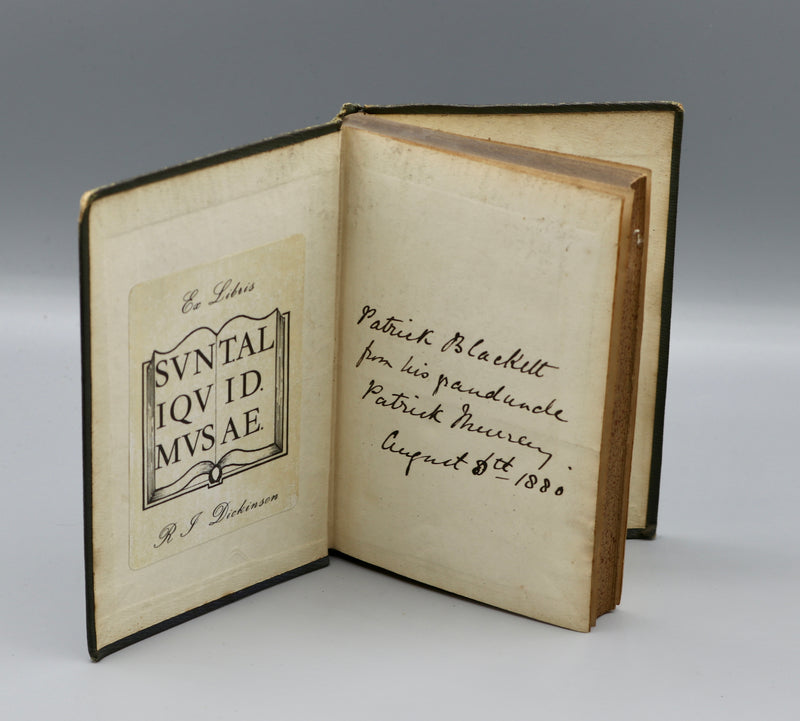 Ex Libris
SVNTAL
IQVID.
MVSAE.
R J Dickinson
Patrick Blackett
from his granduncle
Patrick Murray.
August 8th 1880